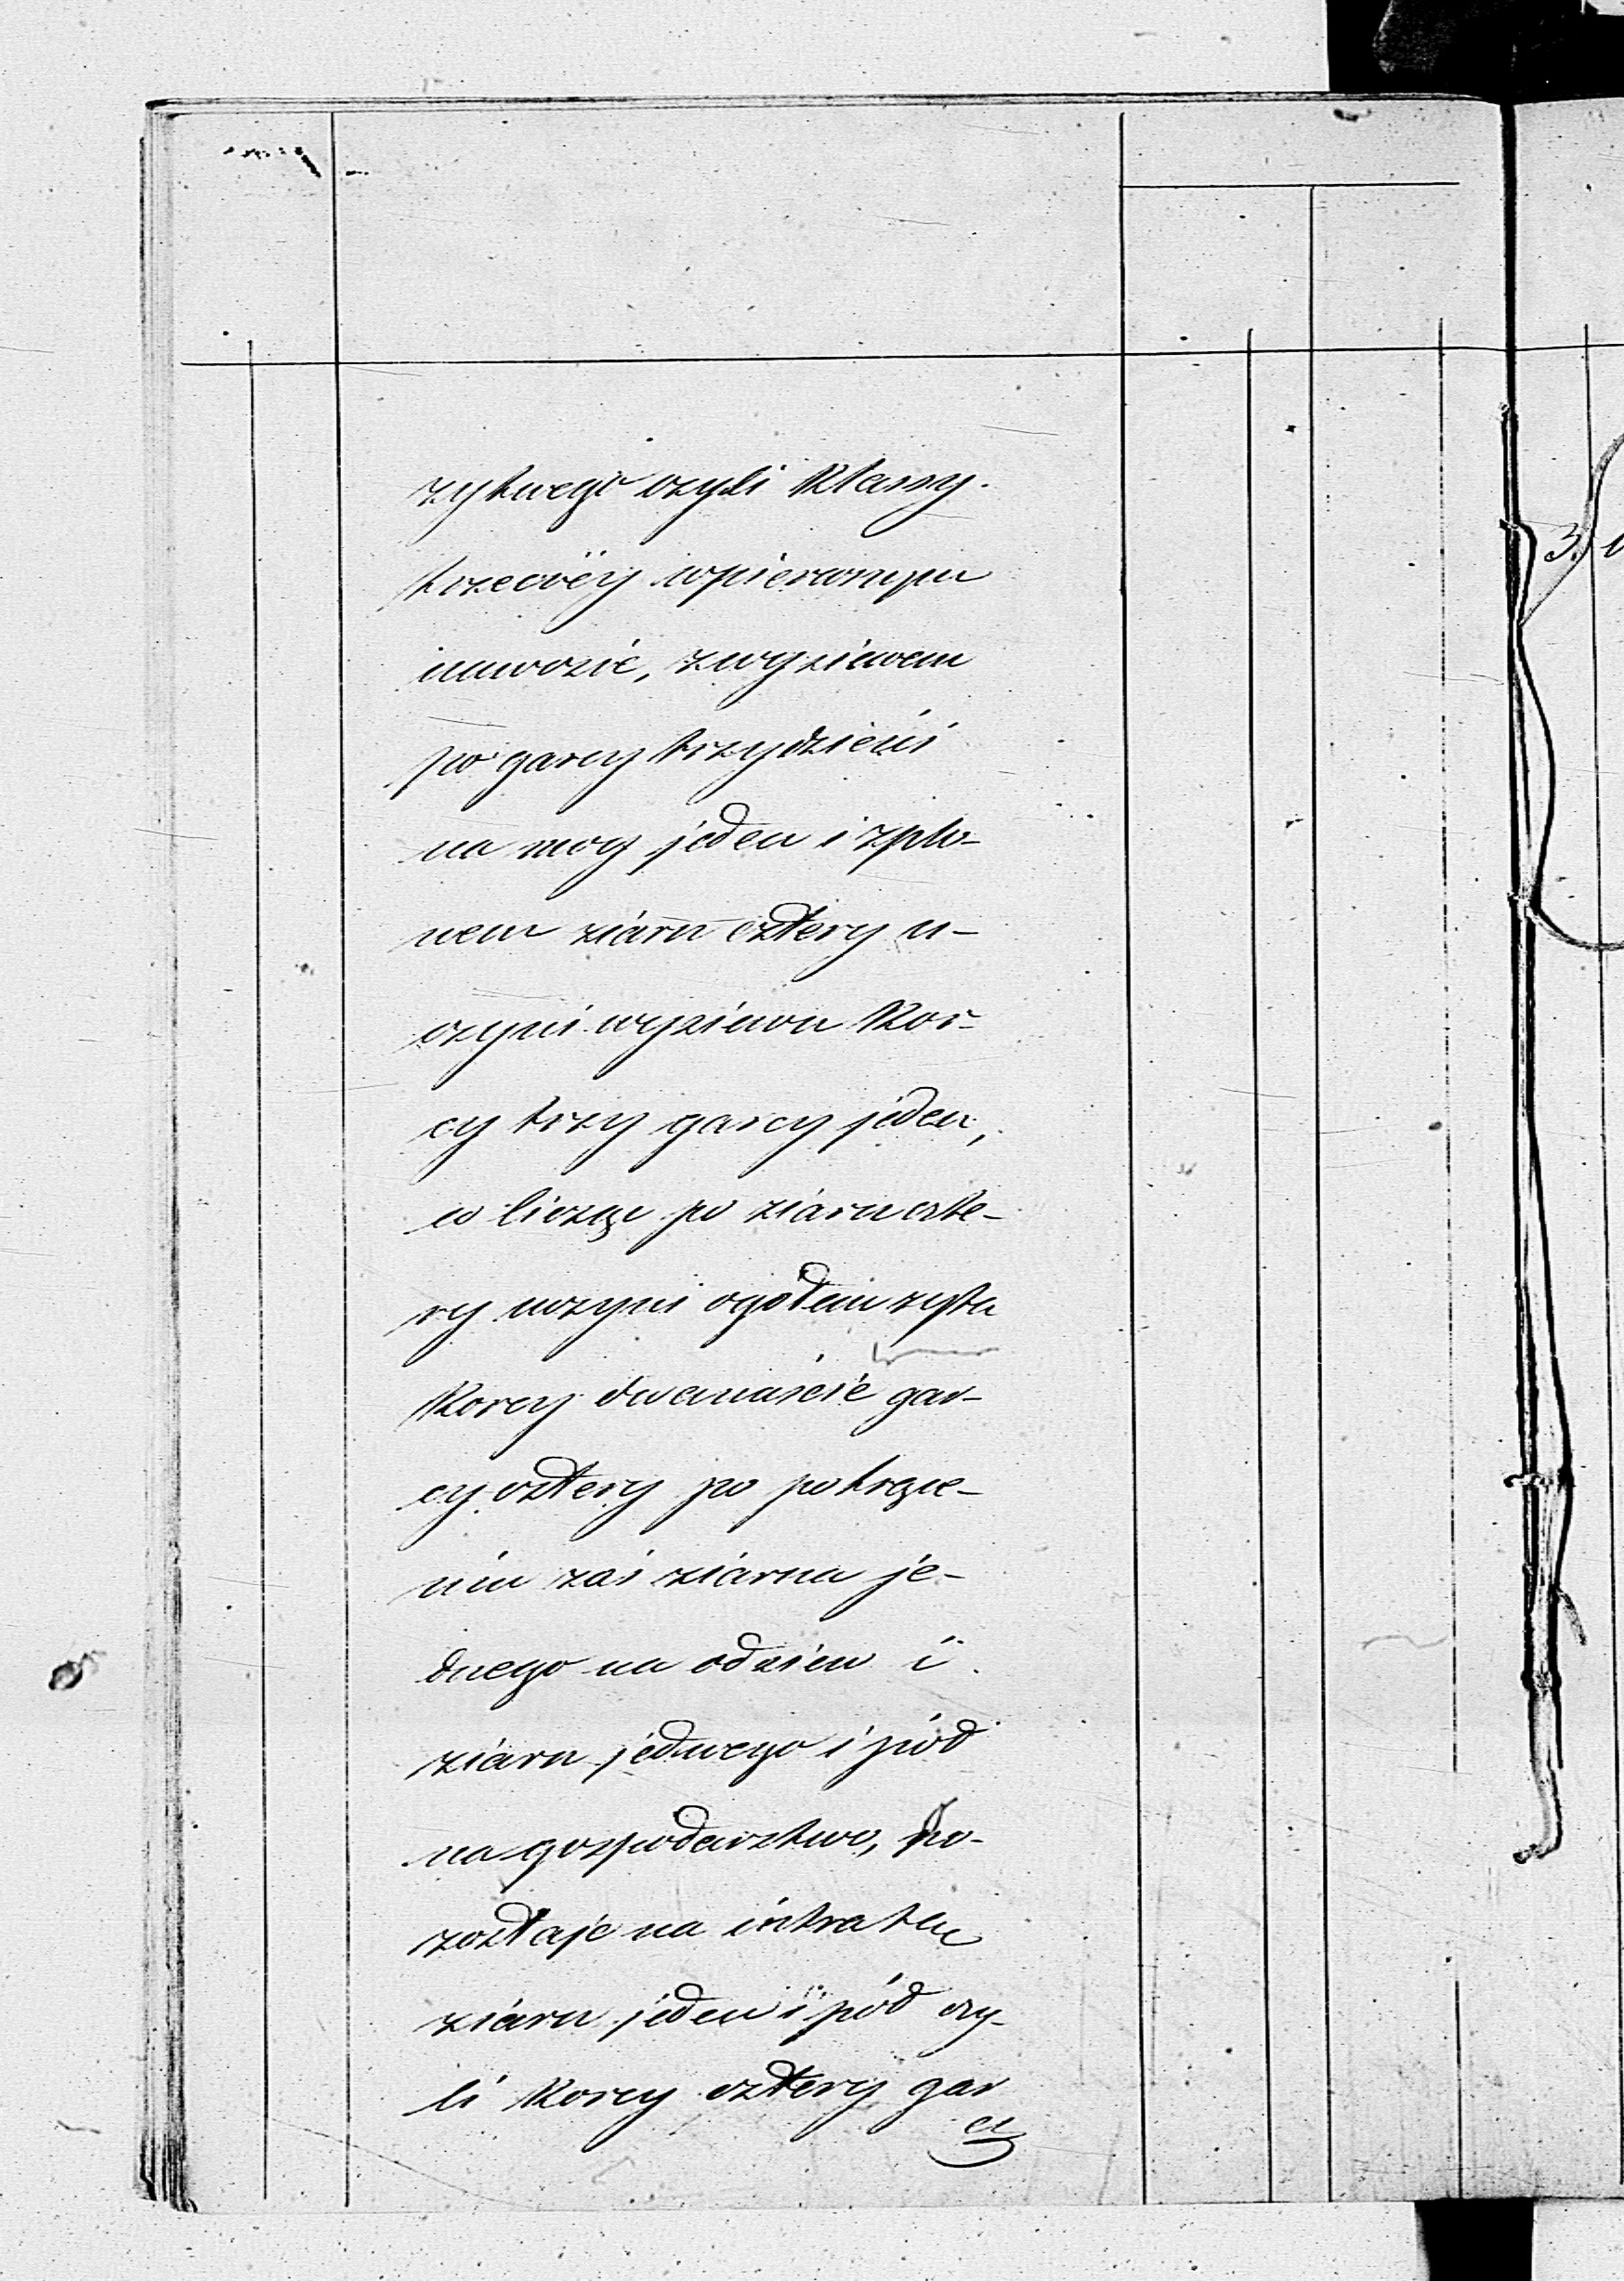 zytnego czyli Klassy
trzeciéy w pierwszym
nawozie, z wysiewem
po garcy trzydzieści
na mog jeden i z plo-
nem ziarn cztery u-
czyni wysiewu Kor-
cy trzy garcy jeden,
co licząc po ziarn czte-
ry uczyni ogółem żyta
Korcy dwanaście gar-
cy cztery po potrące-
niu zaś ziarna je-
dnego na odsiew i
ziarn jednego i pół
na gospodarstwo, po-
zostaje na intratę
ziarn jeden i pół czy-
li Korcy cztery gar
cy
3.